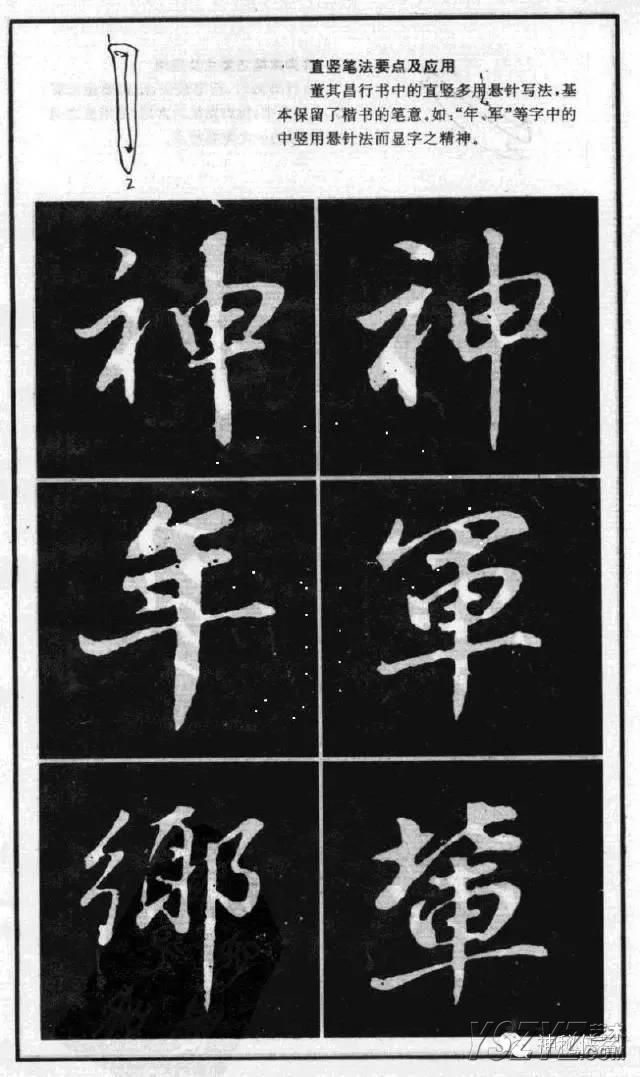 直竖笔法要点及应用
董其昌行书中的直竖多用悬针写法,基
本保留了楷书的笔意。如:“年、军”等字中的
中竖用悬针法而显字之精神。
1
2
神 神
年 軍
鄉 輩
YSZYZ艺术